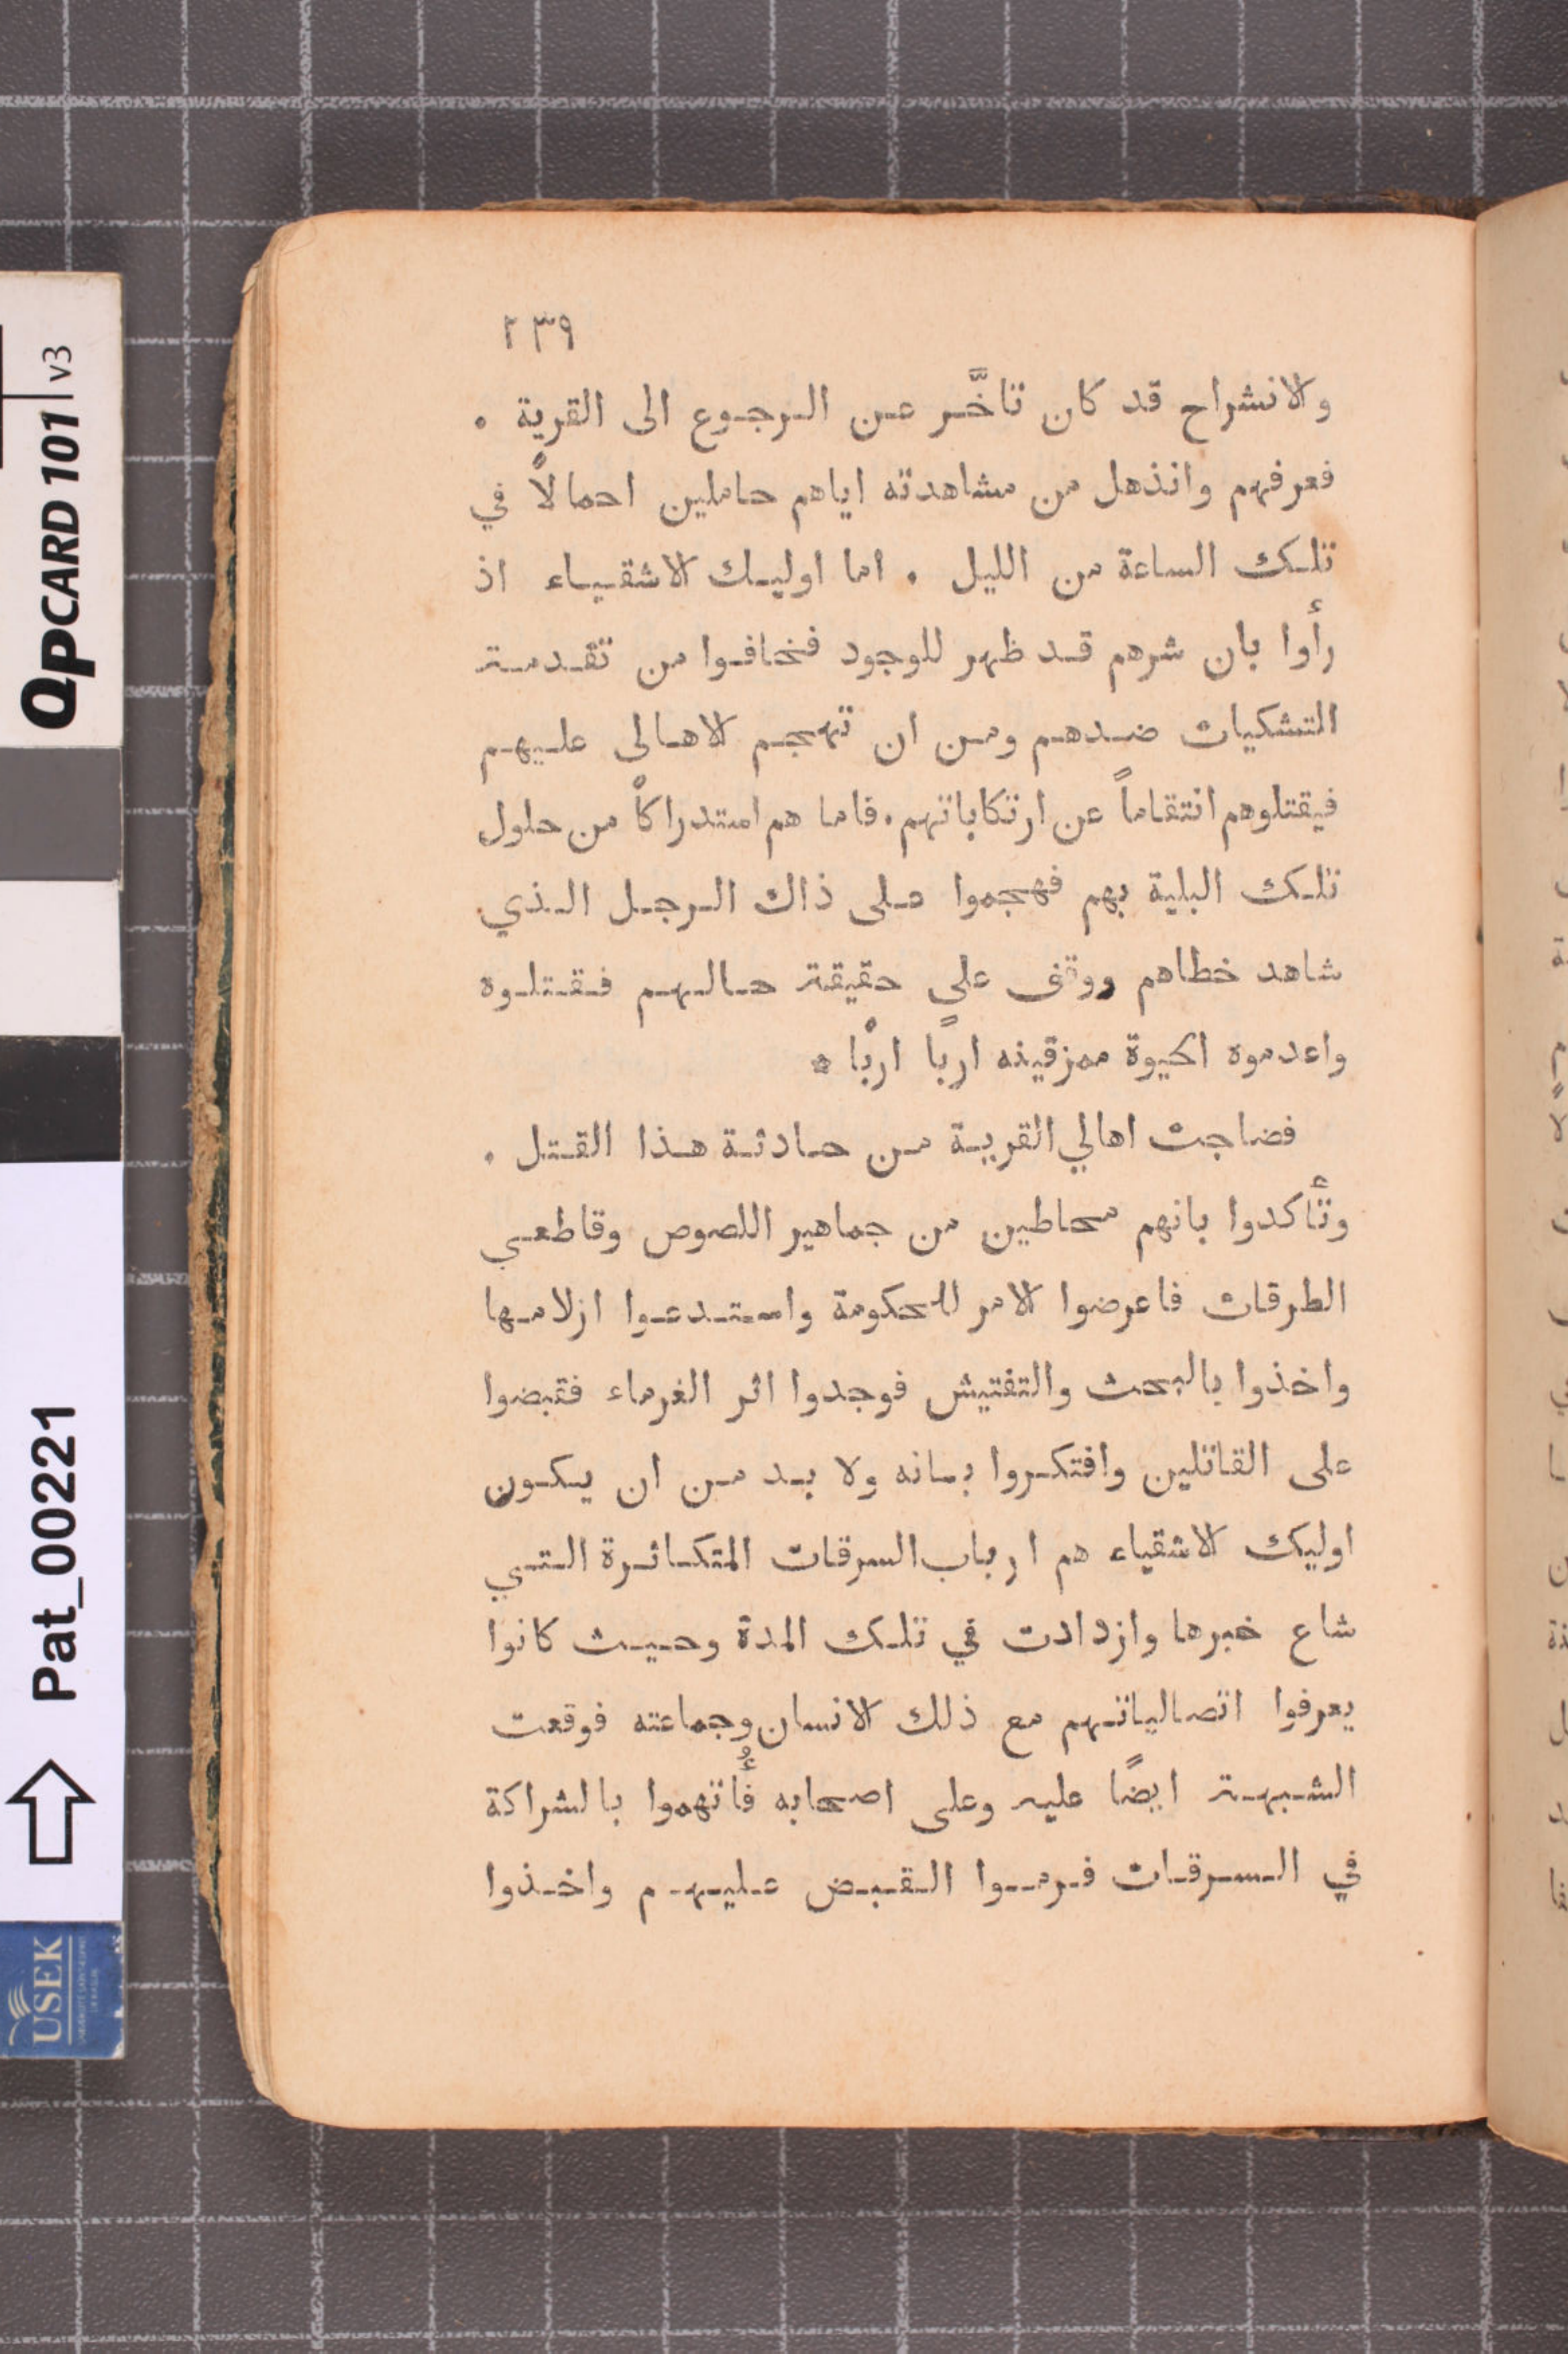 ٢٣٩
والانشراح قد كان تاخَّر عن الرجوع الى القرية .
فعرفهم وانذهل من مشاهدته اياهم حاملين احمالاً في
تلك الساعة من الليل . اما اوليك الاشقياء اذ
رأوا بان شرهم قد ظهر للوجود فخافوا من تقدمة
التشكيات ضدهم ومن ان تهجم الاهالى عليهم
فيقتلوهم انتقاماً عن ارتكاباتهم . فاما هم استدراكاً من حلول
تلك البلية بهم فهجموا على ذاك الرجل الذي
شاهد خطاهم ووقف على حقيقة حالهم فقتلوه
واعدموه الحيوة ممزقينه اربًا اربًا .
فضاجت اهالي القرية من حادثة هذا القتل .
وتأكدوا بانهم محاطين من جماهير اللصوص وقاطعي
الطرقات فاعرضوا الامر للحكومة واستدعوا ازلامها
واخذوا بالبحث والتفتيش فوجدوا اثر الغرماء فقبضوا
على القاتلين وافتكروا بانه ولا بد من ان يكون
اوليك الاشقياء هم ارباب السرقات المتكاثرة التي
شاع خبرها وازدادت في تلك المدة وحيث كانوا
يعرفوا اتصالياتهم مع ذلك الانسان وجماعته فوقعت
الشبهة ايضًا عليه وعلى اصحابه فأُتهموا بالشراكة
في السرقات فرموا القبض عليهم واخذوا
QPCARD 101 v3
Pat_00221
USEK